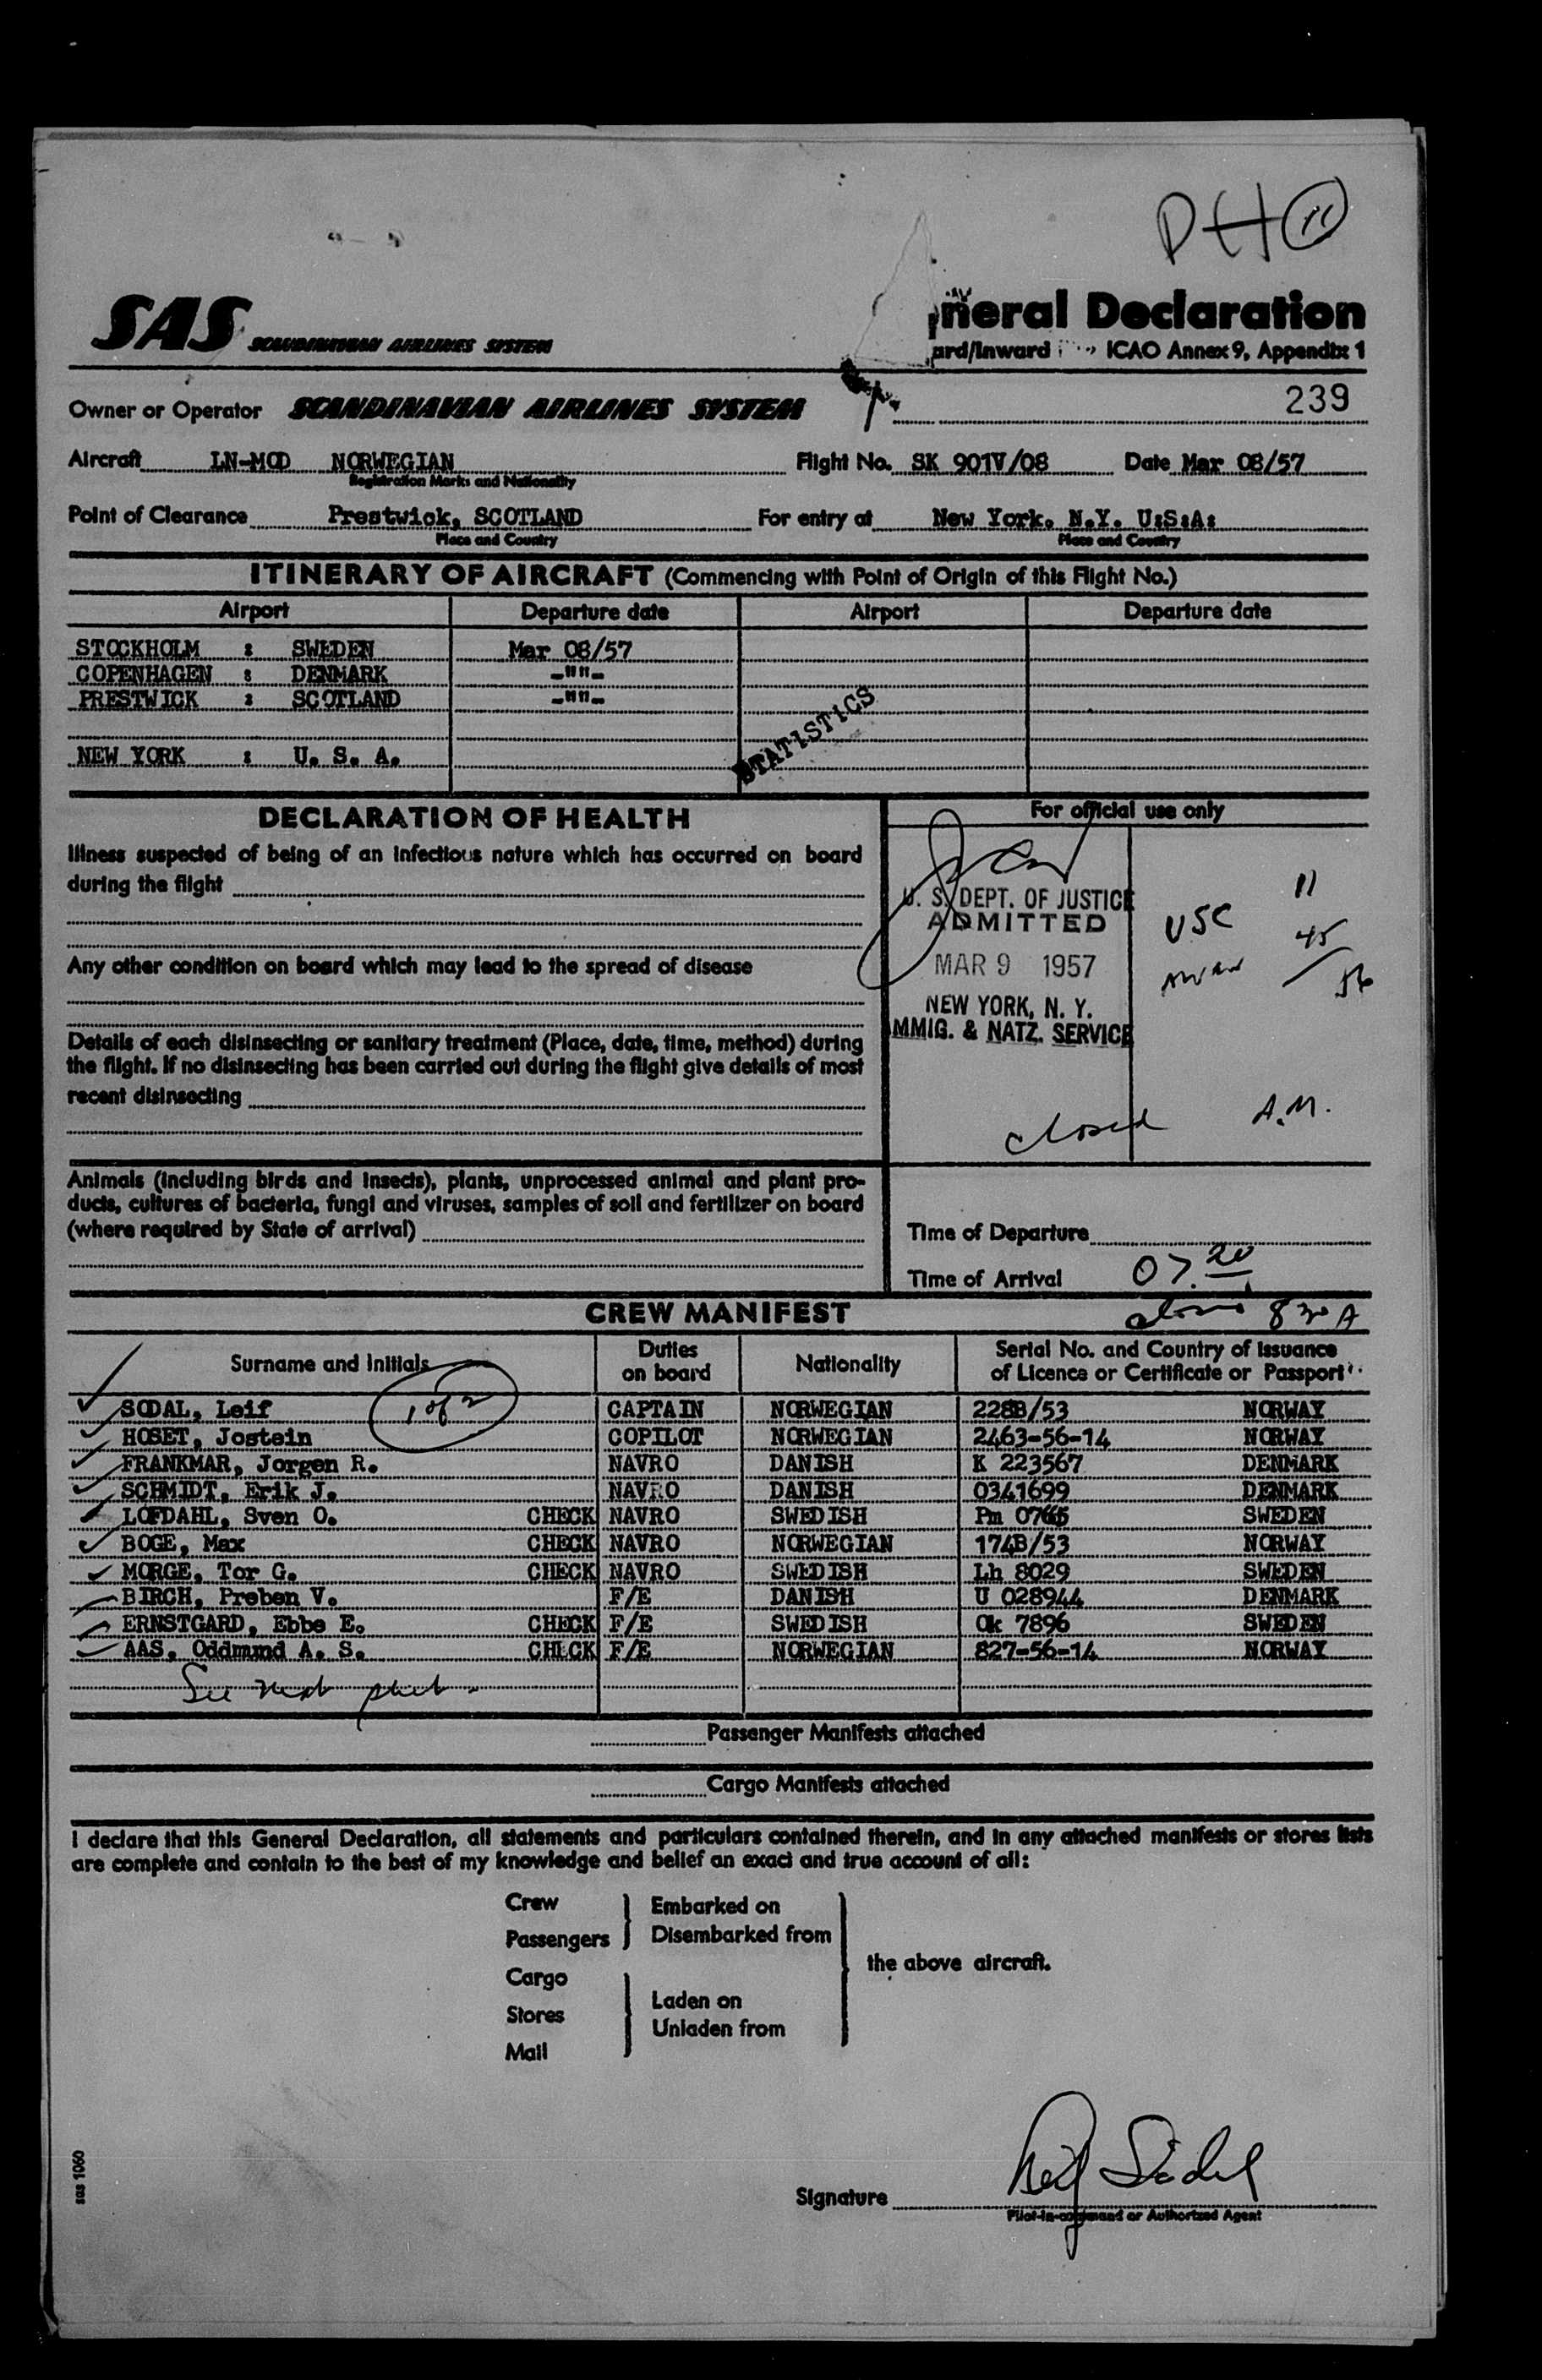 PH 11
SAS SCANDINAVIAN AIRLINES SYSTEM
neral Declaration
ard/Inward ICAO Annex 9, Appendix 1
239
Owner or Operator SCANDINAVIAN AIRLINES SYSTEM
Aircraft LN-MOD NORWEGIAN Flight No. SK 901V/08 Date Mar 08/57
Registration Marks and Nationality
Point of Clearance Prestwick, SCOTLAND For entry at New York. N.Y. U:S:A:
Place and Country Place and Country
ITINERARY OF AIRCRAFT (Commencing with Point of Origin of this Flight No.)
Airport Departure date Airport Departure date
STOCKHOLM : SWEDEN Mar 08/57
COPENHAGEN : DENMARK -""-
PRESTWICK : SCOTLAND -""-
STATISTICS
NEW YORK : U. S. A.
DECLARATION OF HEALTH
Illness suspected of being of an infectious nature which has occurred on board
during the flight
Any other condition on board which may lead to the spread of disease
Details of each disinsecting or sanitary treatment (Place, date, time, method) during
the flight. If no disinsecting has been carried out during the flight give details of most
recent disinsecting
Animals (including birds and insects), plants, unprocessed animal and plant pro-
ducts, cultures of bacteria, fungi and viruses, samples of soil and fertilizer on board
(where required by State of arrival)
For official use only
U. S. DEPT. OF JUSTICE
ADMITTED
MAR 9 1957
NEW YORK, N. Y.
MMIG. & NATZ. SERVICE
11
USC 45
56
closed A.M.
Time of Departure
Time of Arrival 07.20
CREW MANIFEST
830 A
Surname and Initials
Duties
on board
Nationality
Serial No. and Country of Issuance
of Licence or Certificate or Passport
1 of 2
SODAL, Leif CAPTAIN NORWEGIAN 228B/53 NORWAY
HOSET, Jostein COPILOT NORWEGIAN 2463-56-14 NORWAY
FRANKMAR, Jorgen R. NAVRO DANISH K 223567 DENMARK
SCHMIDT, Erik J. NAVRO DANISH 0341699 DENMARK
LOFDAHL, Sven O. CHECK NAVRO SWEDISH Pm SWEDEN
BOGE, Max CHECK NAVRO NORWEGIAN 174B/53 NORWAY
MORGE, Tor G. CHECK NAVRO SWEDISH Lh 8029 SWEDEN
BIRCH, Preben V. F/E DANISH U 028944 DENMARK
ERNSTGARD, Ebbe E. CHECK F/E SWEDISH Ok 7896 SWEDEN
AAS, Oddmund A. S. CHECK F/E NORWEGIAN 827-56-14 NORWAY
See next sheet
Passenger Manifests attached
Cargo Manifests attached
I declare that this General Declaration, all statements and particulars contained therein, and in any attached manifests or stores lists
are complete and contain to the best of my knowledge and belief an exact and true account of all:
Crew
Passengers
Embarked on
Disembarked from
Cargo
Stores
Mail
Laden on
Unladen from
the above aircraft.
sas 1060
Signature Leif Sødal
Pilot-in-command or Authorized Agent